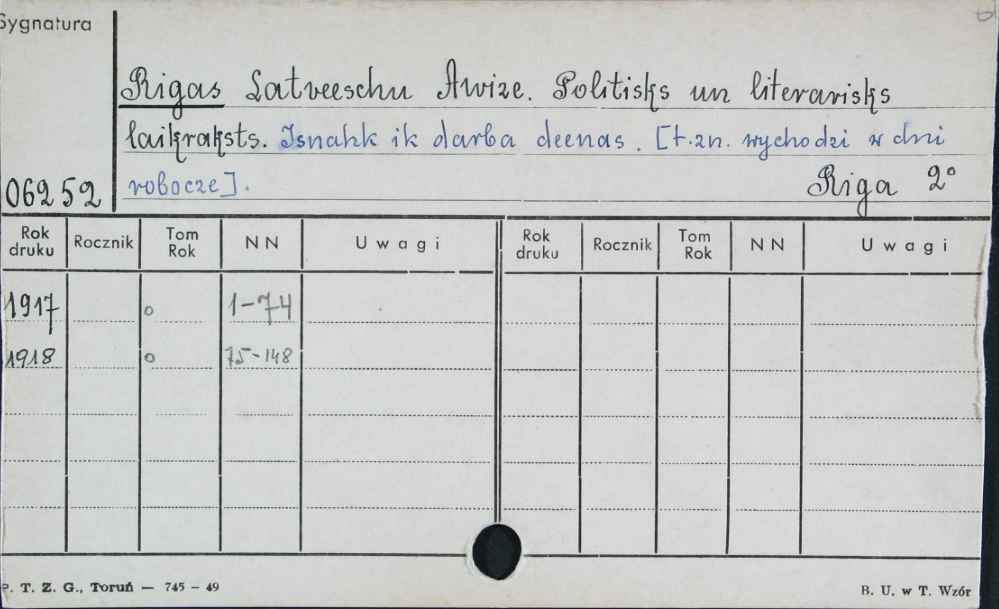 Sygnatura
Rigas Latveeschu Awize. Politisks un literarisks
laikraksts. Isnahk ik darba deenas. [t.zn. wychodzi w dni
06252 robocze]. Riga 2°
Rok druku Rocznik Tom Rok NN Uwagi Rok druku Rocznik Tom Rok NN Uwagi
1917 o 1-74
1918 o 75-148
P. T. Z. G., Toruń — 745 - 49 B. U. w T. Wzór